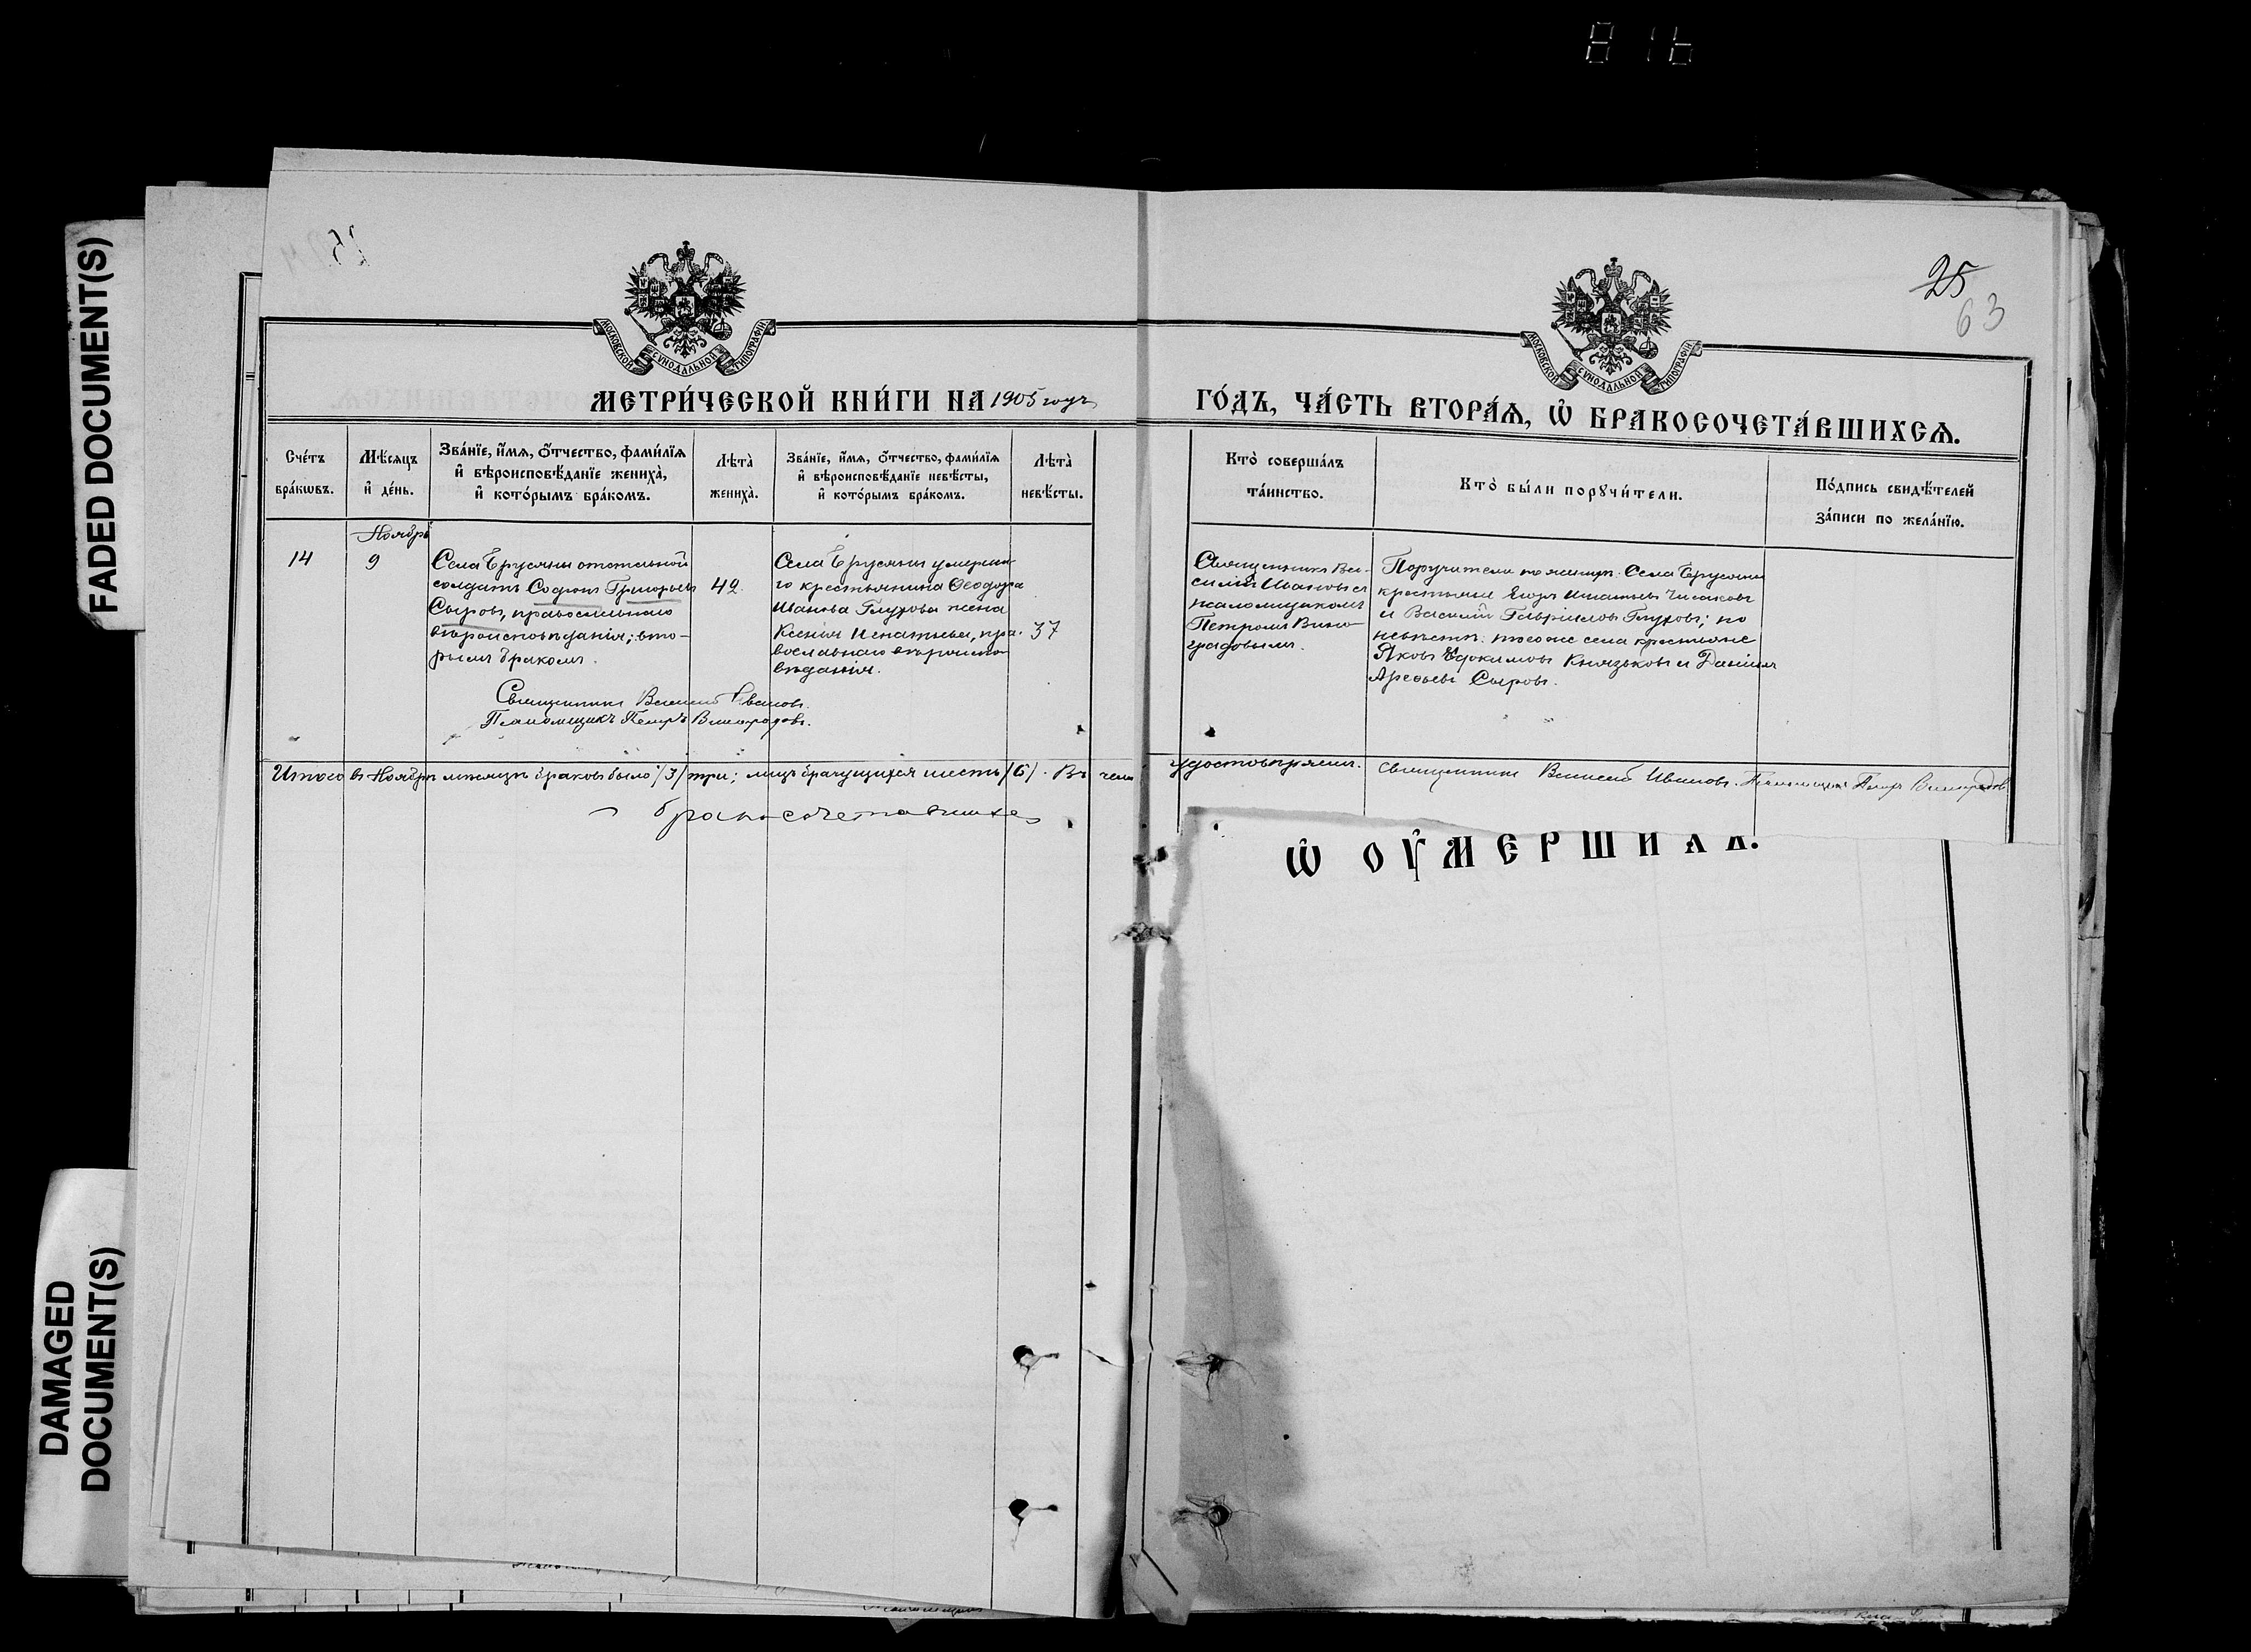 816
FADED DOCUMENT(S)
DAMAGED
DOCUMENT(S)
25
63
МОСКОВСКОЙ СѴНОДАЛЬНОЙ ТИПОГРАФІИ
МОСКОВСКОЙ СѴНОДАЛЬНОЙ ТИПОГРАФІИ
МЕТРИ́ЧЕСКОЙ КНИ́ГИ НА 1905 годъ
ГО́ДЪ, ЧА́СТЬ ВТОРА́Ѧ, Ѡ҆ БРАКОСОЧЕТА́ВШИХСѦ.
Сче́тъ
бра́кѡвъ.
Мѣ́сяцъ
и҆ де́нь.
Зва́нїе, и҆́мя, о҆́тчество, фами́лїя
и҆ вѣроисповѣ́данїе жениха̀,
и҆ кото́рымъ бра́комъ.
Лѣта̀
жениха̀.
Зва́нїе, и҆́мя, о҆́тчество, фами́лїя
и҆ вѣроисповѣ́данїе невѣ́сты,
и҆ кото́рымъ бра́комъ.
Лѣта̀
невѣ́сты.
Кто̀ соверша́лъ
та́инство.
Кто̀ бы́ли порꙋчи́тели.
По́дпись свидѣ́телей
за́писи по жела́нїю.
Ноябрь
14
9
Села Брусяны отставной
солдатъ Софонъ Григорьевъ
Сыровъ, православнаго
вѣроисповѣданія; вто-
рымъ бракомъ.
42.
Села Брусяны умерша-
го крестьянина Ѳеодора
Иванова Глухова жена
Ксенія Игнатьева, пра-
вославнаго вѣроиспо-
вѣданія.
37
Священникъ Ва-
силій Ивановъ съ
псаломщикомъ
Петромъ Вино-
градовымъ.
Поручители по женихѣ: Села Брусяны
крестьяне Егоръ Игнатьевъ Чисаковъ
и Василій Гавриловъ Глуховъ; по
невѣстѣ: тогоже села крестьяне
Яковъ Евдокимовъ Князьковъ и Даніилъ
Арефьевъ Сыровъ.
Священникъ Василій Ивановъ.
Псаломщикъ Петръ Виноградовъ.
Итого въ Ноябрѣ мѣсяцѣ браковъ было /3/ три; лицъ брачущихся шесть /6/. Въ чемъ
удостовѣряемъ. Священникъ Василій Ивановъ. Псаломщикъ Петръ Виноградовъ
бракосочетавшихся
Ѡ҆ ОУ҆МЕРШИХЪ.